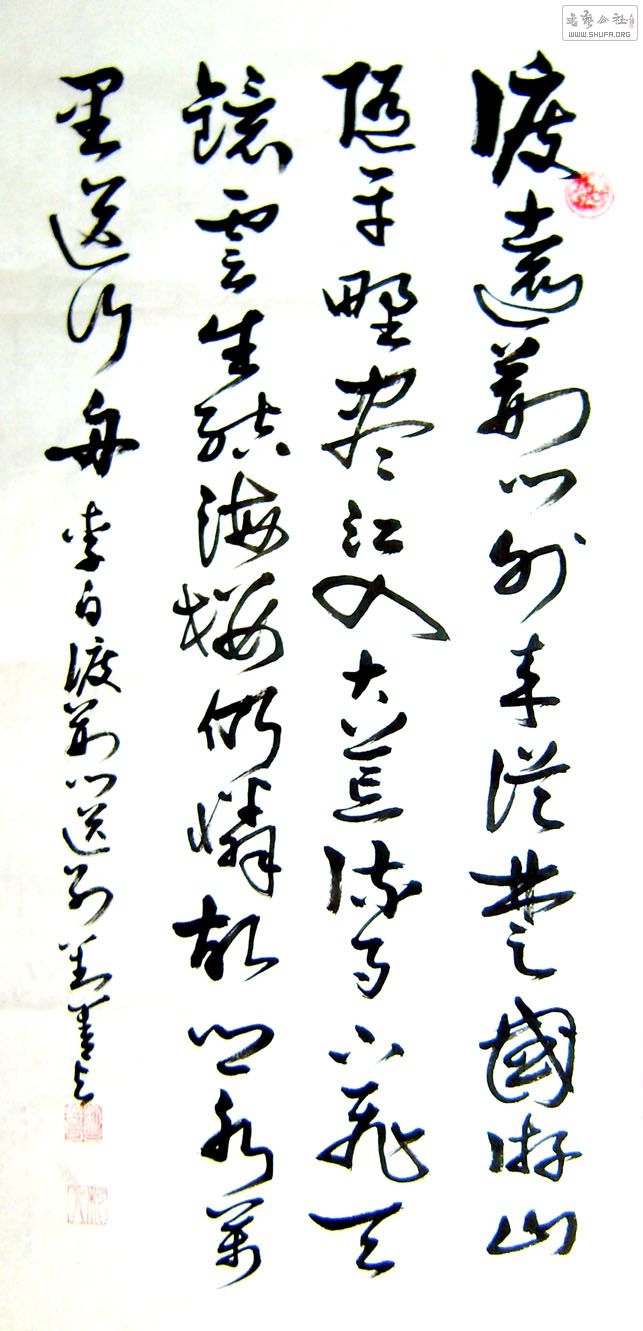 書藝公社
WWW.SHUFA.ORG
渡遠荊門外来從楚國游山
隨平野盡江入大荒流月下飛天
鏡雲生結海樓仍憐故鄉水萬
里送行舟 李白渡荊門送別